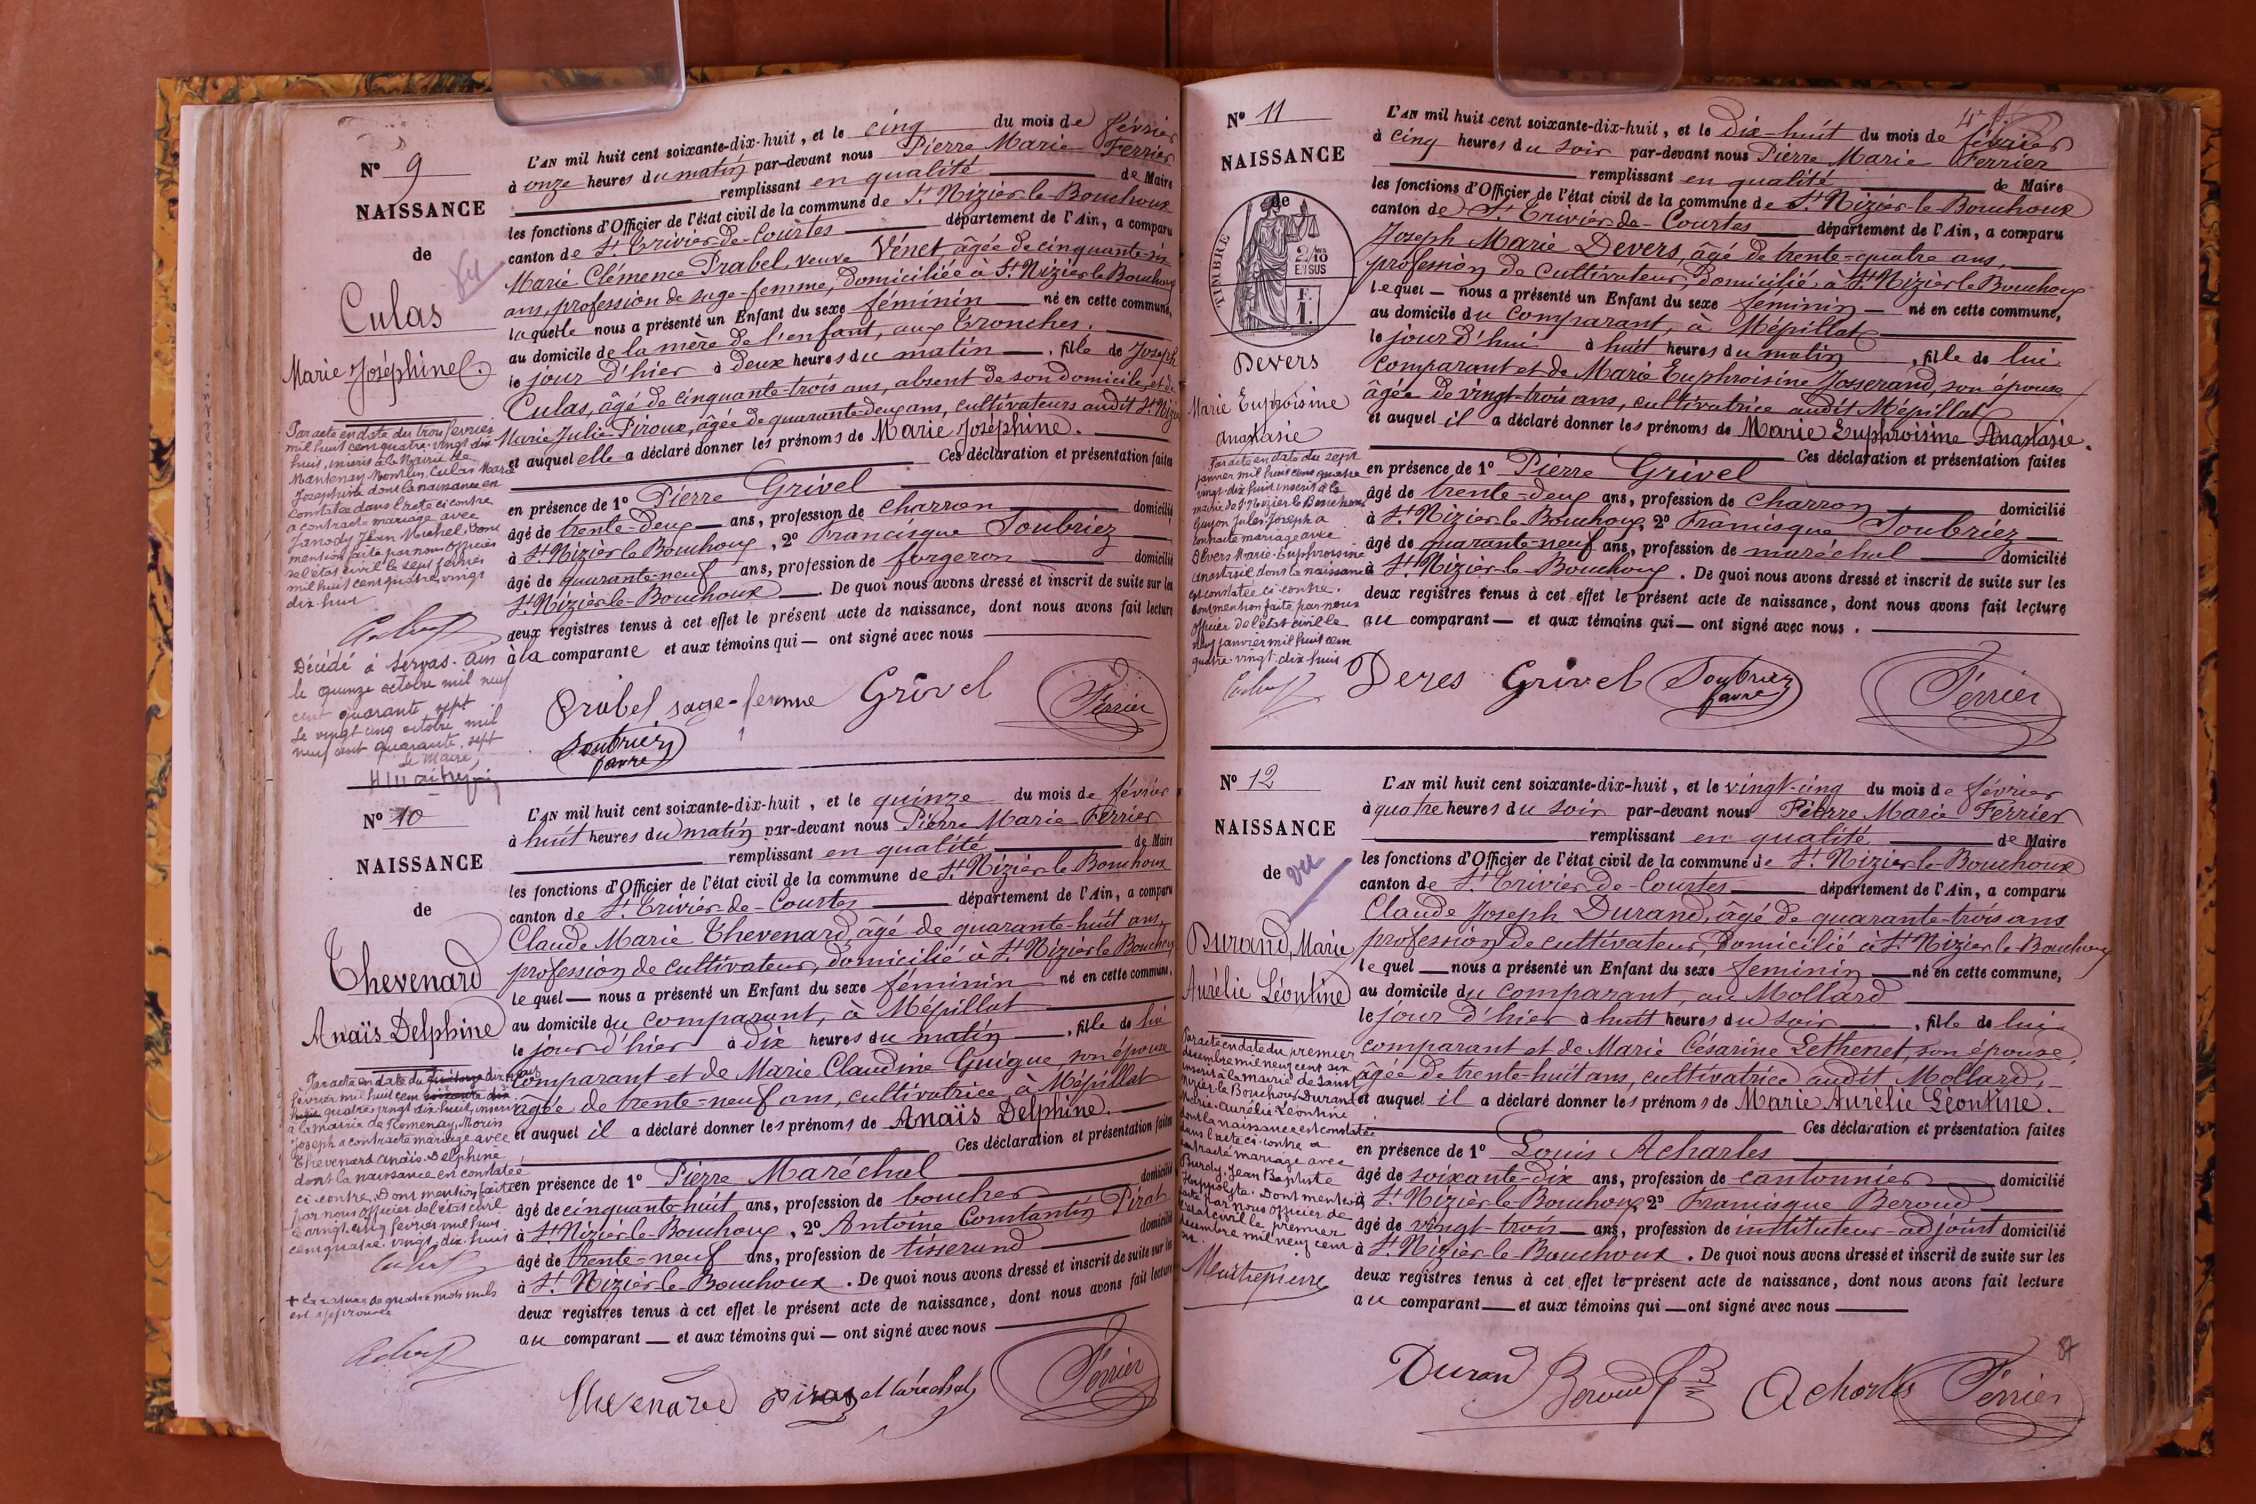 N° 9
NAISSANCE
de
Vu
Culas
Marie Joséphine.
Par acte en date du trois février
mil huit cent quatre-vingt dix
huit, inscrit à la Mairie de
Mantenay-Montlin, Culas Marie
Joséphine dont la naissance est
constatée dans l'acte ci contre
a contracté mariage avec
Janody Jean Michel. Dont
mention faite par nous officier
de l'état civil le sept février
mil huit cent quatre-vingt
dix-huit
Décédé à Servas. Ain
le quinze octobre mil neuf
cent quarante sept
Le vingt cinq octobre mil
neuf cent quarante. sept
Le Maire,
L'AN mil huit cent soixante-dix-huit, et le cinq du mois de février
à onze heures du matin par-devant nous Pierre Marie Ferrier
remplissant en qualité de Maire
les fonctions d'Officier de l'état civil de la commune de St. Nizier le Bouchoux
canton de St. Trivier-de-Courtes département de l'Ain, a comparu
Marie Clémence Prabel, veuve Vénet, âgée de cinquante-six
ans, profession de sage-femme, domiciliée à St. Nizier le Bouchoux
laquelle nous a présenté un Enfant du sexe féminin né en cette commune,
au domicile de la mère de l'enfant, aux Tronches.
le jour d'hier à deux heures du matin, fille de Joseph
Culas, âgé de cinquante-trois ans, absent de son domicile, et de
Marie Julie Piroux, âgée de quarante-deux ans, cultivateurs audit St. Nizier
et auquel elle a déclaré donner les prénoms de Marie Joséphine.
Ces déclaration et présentation faites
en présence de 1° Pierre Grivel
âgé de trente-deux ans, profession de charron domicilié
à St. Nizier le Bouchoux, 2° Francisque Soubriez
âgé de quarante-neuf ans, profession de forgeron domicilié
St. Nizier-le-Bouchoux. De quoi nous avons dressé et inscrit de suite sur les
deux registres tenus à cet effet le présent acte de naissance, dont nous avons fait lecture
à la comparante et aux témoins qui — ont signé avec nous
Prabel sage-femme Grivel Ferrier
Soubriez
favre
N° 10
NAISSANCE
de
Thevenard
Anaïs Delphine
Par acte en date du dix neuf
février mil huit cent
quatre-vingt dix-huit, inscrit
à la mairie de Romenay, Morin
Joseph a contracté mariage avec
Thevenard Anaïs-Delphine
dont la naissance est constatée
ci-contre. Dont mention faite
par nous officier de l'état civil
le vingt-cinq février mil huit
cent quatre-vingt dix-huit
+ La rature de quatre mots nuls
est approuvée
L'AN mil huit cent soixante-dix-huit, et le quinze du mois de février
à huit heures du matin par-devant nous Pierre Marie Ferrier
remplissant en qualité de Maire
les fonctions d'Officier de l'état civil de la commune de St. Nizier le Bouchoux
canton de St. Trivier-de-Courtes département de l'Ain, a comparu
Claude Marie Thevenard, âgé de quarante-huit ans,
profession de cultivateur, domicilié à St. Nizier le Bouchoux
lequel — nous a présenté un Enfant du sexe féminin né en cette commune,
au domicile du comparant, à Mépillat
le jour d'hier à dix heures du matin, fille de lui
comparant et de Marie Claudine Guigue son épouse
âgée de trente-neuf ans, cultivatrice, à Mépillat
et auquel il a déclaré donner les prénoms de Anaïs Delphine.
Ces déclaration et présentation faites
en présence de 1° Pierre Maréchal
âgé de cinquante-huit ans, profession de boucher domicilié
à St. Nizier le Bouchoux, 2° Antoine Constantin Pirat
âgé de trente-neuf ans, profession de tisserand domicilié
à St. Nizier-le-Bouchoux. De quoi nous avons dressé et inscrit de suite sur les
deux registres tenus à cet effet le présent acte de naissance, dont nous avons fait lecture
au comparant — et aux témoins qui — ont signé avec nous
Thevenard Pirat Maréchal Ferrier
N° 11
NAISSANCE
de
TIMBRE
2/10
EN SUS
F.
1.
Devers
Marie Euphroisine
Anastasie
Par acte en date du sept
janvier mil huit cent quatre
vingt-dix huit inscrit à la
mairie de St Nizier le Bouchoux
Guyon Jules-Joseph a
contracté mariage avec
Devers Marie-Euphroisine
Anastasie dont la naissance
est constatée ci contre.
Dont mention faite par nous
officier de l'état civil le
neuf janvier mil huit cent
quatre-vingt-dix-huit
L'AN mil huit cent soixante-dix-huit, et le dix-huit du mois de février
à cinq heures du soir par-devant nous Pierre Marie Ferrier
remplissant en qualité de Maire
les fonctions d'Officier de l'état civil de la commune de St. Nizier-le-Bouchoux
canton de St. Trivier-de-Courtes département de l'Ain, a comparu
Joseph Marie Devers, âgé de trente-quatre ans,
profession de cultivateur, domicilié à St. Nizier le Bouchoux
lequel — nous a présenté un Enfant du sexe féminin — né en cette commune,
au domicile du comparant, à Mépillat
le jour d'hui à huit heures du matin, fille de lui
comparant et de Marie Euphroisine Josserand, son épouse
âgée de vingt-trois ans, cultivatrice audit Mépillat
et auquel il a déclaré donner les prénoms de Marie Euphroisine Anastasie.
Ces déclaration et présentation faites
en présence de 1° Pierre Grivel
âgé de trente-deux ans, profession de charron domicilié
à St. Nizier-le-Bouchoux, 2° Francisque Soubriez
âgé de quarante-neuf ans, profession de maréchal domicilié
à St. Nizier-le-Bouchoux. De quoi nous avons dressé et inscrit de suite sur les
deux registres tenus à cet effet le présent acte de naissance, dont nous avons fait lecture
au comparant — et aux témoins qui — ont signé avec nous.
Deres Grivel Soubriez favre Ferrier
N° 12
NAISSANCE
de
vu
Durand, Marie
Aurélie Léontine
Par acte en date du premier
décembre mil neuf cent six
inscrit à la mairie de Saint
Nizier-le-Bouchoux, Durand
Marie-Aurélie Léontine
dont la naissance est constatée
dans l'acte ci-contre a
contracté mariage avec
Burdy Jean Baptiste
Hippolyte. Dont mention
faite par nous officier de
l'état civil le premier
décembre mil neuf cent
six.
L'AN mil huit cent soixante-dix-huit, et le vingt-cinq du mois de février
à quatre heures du soir par-devant nous Pierre Marie Ferrier
remplissant en qualité de Maire
les fonctions d'Officier de l'état civil de la commune de St. Nizier-le-Bouchoux
canton de St. Trivier-de-Courtes département de l'Ain, a comparu
Claude Joseph Durand, âgé de quarante-trois ans
profession de cultivateur, domicilié à St. Nizier le Bouchoux
lequel — nous a présenté un Enfant du sexe féminin — né en cette commune,
au domicile du comparant, au Mollard
le jour d'hier à huit heures du soir, fille de lui
comparant et de Marie Césarine Lethenet, son épouse,
âgée de trente-huit ans, cultivatrice audit Mollard,
et auquel il a déclaré donner les prénoms de Marie Aurélie Léontine.
Ces déclaration et présentation faites
en présence de 1° Louis Acharles
âgé de soixante-dix ans, profession de cantonnier domicilié
à St. Nizier-le-Bouchoux, 2° Francisque Beroud
âgé de vingt-trois ans, profession de instituteur-adjoint domicilié
à St. Nizier-le-Bouchoux. De quoi nous avons dressé et inscrit de suite sur les
deux registres tenus à cet effet le présent acte de naissance, dont nous avons fait lecture
au comparant — et aux témoins qui — ont signé avec nous
Durand Beroud Acharles Ferrier